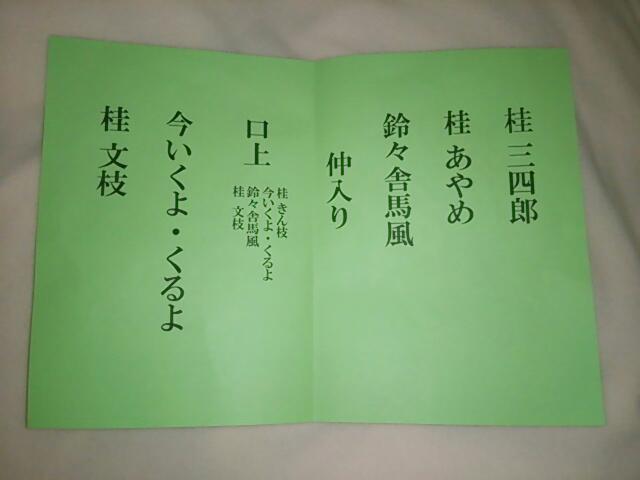 桂 三四郎
桂 あやめ
鈴々舎馬風
仲入り
口上
桂 きん枝
今いくよ・くるよ
鈴々舎馬風
桂 文枝
今いくよ・くるよ
桂 文枝